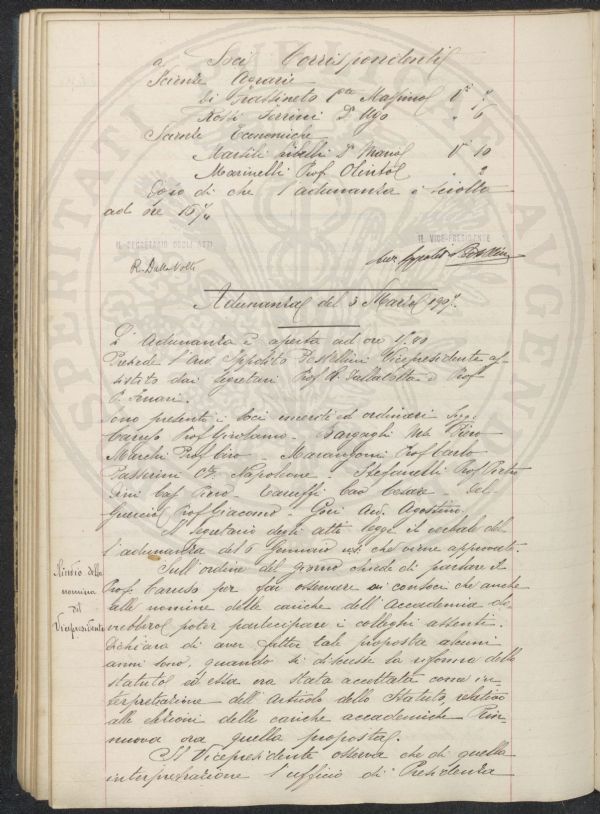 a Soci Corrispondenti
Scienze Agrarie
Di Frassineto Cte Massimo Vi 7
Rossi Ferrini Dr Ugo " 6
Scienze Economiche
Martelli Dr Manol Vi 10
Marinelli Prof. Olinto " 2
Dopo di che l'adunanza è sciolta
ad ore 16 ¼
IL SEGRETARIO DEGLI ATTI
IL VICE-PRESIDENTE
R. Dalla Volta
Avv. Ippolito Pestellini
Adunanza del 3 Marzo 1907.
L'Adunanza è aperta ad ore 15.
Presiede l'Avv. Ippolito Pestellini Vicepresidente as-
sistito dai Segretari Prof R. Dalla Volta e Prof
P. Ferrari.
Sono presenti i Soci emeriti ed ordinari Sigg.
Caruso Prof Girolamo - Bargagli Piero
Marchi Prof Ciro - Marangoni Prof Carlo
Passerini Cte Napoleone - Stefanelli Prof Pietro
Pini Caf - Caruffi Cav Cesare - Del
Guercio Prof Giacomo - Gori Avv. Agostino.
Il segretario degli atti legge il verbale del
l'adunanza del 6 Gennaio us. che viene approvato.
Rinvio della
nomina
del
Vicepresidente
Sull'ordine del giorno chiede di parlare il
Prof. Caruso per far osservare ai consoci che anche
alle nomine delle cariche dell'Accademia do
vrebbero poter partecipare i colleghi assenti.
Dichiara di aver fatta tale proposta alcuni
anni sono, quando si discusse la riforma dello
statuto ed essa era stata accettata come in
terpretazione dell'Articolo dello Statuto, relativo
alle elezioni delle cariche accademiche. Rin-
nuova ora quella proposta.
Il Vicepresidente osserva che di quella
interpretazione l'ufficio di Presidenza